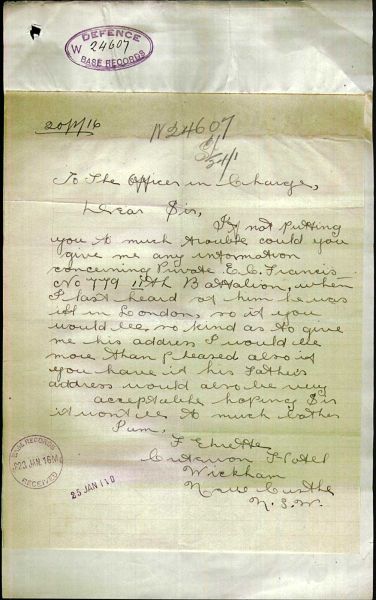 DEFENCE
W 24607
BASE RECORDS
20/1/16
W 24607
24/1
To The Officer in Charge,
Dear Sir,
If not putting
you to much trouble could you
give me any information
concerning Private E. C. Francis
No 779 11th Battalion, when
I last heard of him he was
ill in London, so if you
would be so kind as to give
me his address I would be
more than pleased also if
you have it his Fathers
address would also be very
acceptable hoping Sir
it wont be to much bother
I am,
F
Criterion Hotel
Wickham
Newcastle
N. S. W.
BASE RECORDS
23 JAN 16
RECEIVED
25 JAN